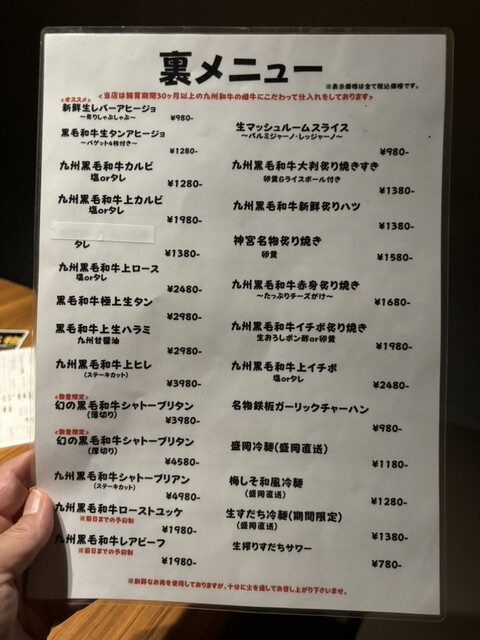 裏メニュー
※表示価格は全て税込価格です。
<当店は飼育期間30ヶ月以上の九州和牛の雌牛にこだわって仕入れをしております>
<オススメ>
新鮮生レバーアヒージョ
～炙りしゃぶしゃぶ～
¥980-
黒毛和牛生タンアヒージョ
～バゲット4枚付き～
¥1280-
九州黒毛和牛カルビ
塩orタレ
¥1280-
九州黒毛和牛上カルビ
塩orタレ
¥1980-
タレ
¥1380-
九州黒毛和牛上ロース
塩orタレ
¥2480-
黒毛和牛極上生タン
¥2980-
黒毛和牛上生ハラミ
九州甘醤油
¥2980-
九州黒毛和牛上ヒレ
(ステーキカット)
¥3980-
<数量限定>
幻の黒毛和牛シャトーブリタン
(薄切り)
¥3980-
<数量限定>
幻の黒毛和牛シャトーブリタン
(厚切り)
¥4580-
九州黒毛和牛シャトーブリアン
(ステーキカット)
¥4980-
九州黒毛和牛ローストユッケ
※前日までの予約制
¥1980-
九州黒毛和牛レアビーフ
※前日までの予約制
¥1980-
生マッシュルームスライス
～パルミジャーノ・レッジャーノ～
¥980-
九州黒毛和牛大判炙り焼きすき
卵黄&ライスボール付き
¥1380-
九州黒毛和牛新鮮炙りハツ
¥1380-
神宮名物炙り焼き
卵黄
¥1580-
九州黒毛和牛赤身炙り焼き
～たっぷりチーズがけ～
¥1680-
九州黒毛和牛イチボ炙り焼き
生おろしポン酢or卵黄
¥1980-
九州黒毛和牛上イチボ
塩orタレ
¥2480-
名物鉄板ガーリックチャーハン
¥980-
盛岡冷麺(盛岡直送)
¥1180-
梅しそ和風冷麺
(盛岡直送)
¥1280-
生すだち冷麺(期間限定)
(盛岡直送)
¥1380-
生搾りすだちサワー
¥780-
※新鮮なお肉を使用しておりますが、十分に火を通してお召し上がり下さいませ。